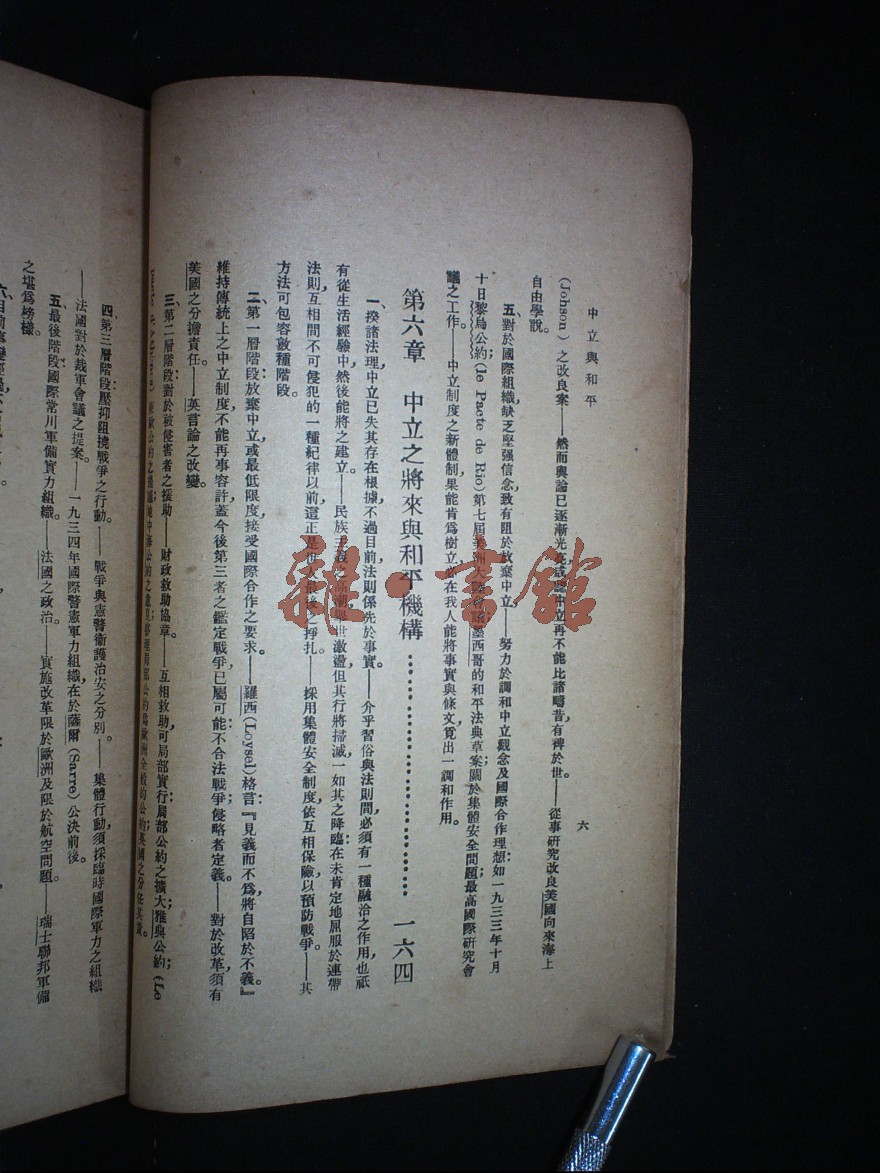 中立與和平
六
(Johson) 之改良案——然而輿論已逐漸光亮咸認中立再不能比諸疇昔有裨於世。——從事研究改良美國向來海上
自由學說。
五、對於國際組織缺乏堅强信念致有阻於放棄中立——努力於調和中立觀念及國際合作理想：如一九三三年十月
十日黎烏公約(le Pacte de Rio)；第七屆美洲大會 墨西哥的和平法典草案關於集體安全問題，最高國際研究會
議之工作。——中立制度之新體制果能肯爲樹立必在我人能將事實與條文覓出一調和作用。
第六章 中立之將來與和平機構…………………………一六四
一、揆諸法理，中立已失其存在根據，不過目前法則係先於事實。——介乎習俗與法則間，必須有一種融洽之作用，也祇
有從生活經驗中然後能將之建立。——民族主義之高潮舉世激盪但其行將掃滅一如其之降臨；在未肯定地屈服於連帶
法則，互相間不可侵犯的一種紀律以前，這正是 最後之掙扎。——採用集體安全制度依互相保險以預防戰爭。——其
方法可包容數種階段。
二、第一層階段：放棄中立，或最低限度接受國際合作之要求。——羅西(Loysel)格言：『見義而不爲，將自陷於不義。』
維持傳統上之中立制度不能再事容許，蓋今後第三者之鑑定戰爭，已屬可能：不合法戰爭；侵略者定義。——對於改革須有
美國之分擔責任。——英言論之改變。
三、第二層階段：對於被侵害者之援助——財政救助協章。——互相救助可局部實行：局部公約之擴大；雅典公約；(Le
公約之 地中海公約之 局部公約爲歐洲全般的公約，英國之分任其責。
四、第三層階段：壓抑阻撓戰爭之行動。——戰爭與憲警衛護治安之分別。——集體行動，須採臨時國際軍力之組織
——法國對於裁軍會議之提案。——一九三四年國際警憲軍力組織，在於薩爾(Sarre)公決前後。
五、最後階段：國際常川軍備實力組織。——法國之政治。——實施改革限於歐洲及限於航空問題。——瑞士聯邦軍備
之堪爲榜樣。
六、目前事變
雜·書館